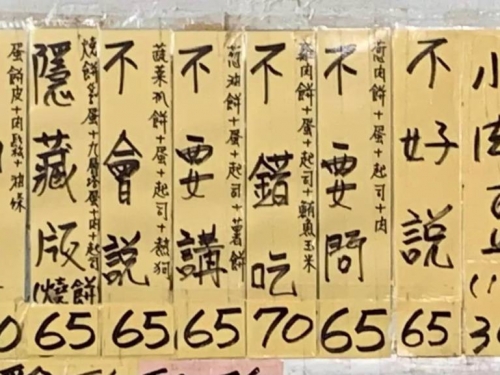 不好說
65
蔥肉餅+蛋+起司+肉
不要問
65
雞肉餅+蛋+起司+鮪魚玉米
不錯吃
70
蔥油餅+蛋+起司+薯餅
不要講
65
蔬菜抓餅+蛋+起司+熱狗
不會說
65
九層塔蛋+肉+起司
隱藏版(燒餅
65
蛋餅皮+肉鬆+油條